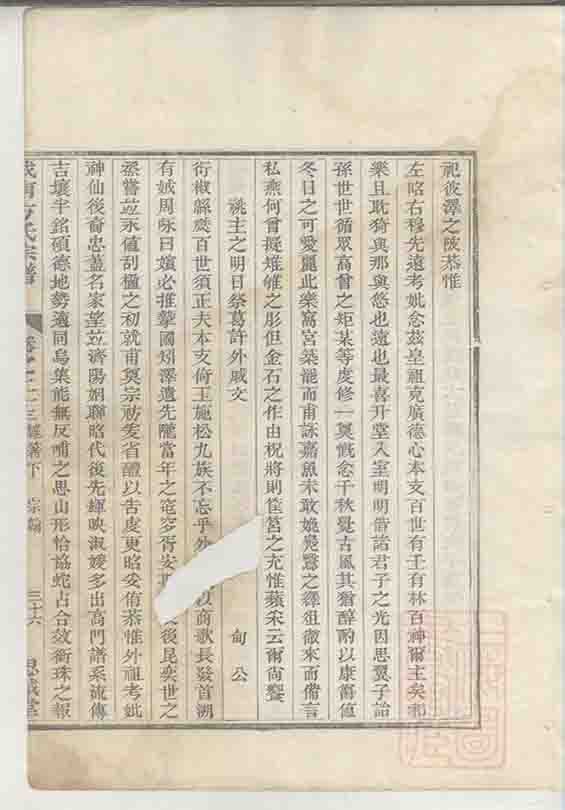 祀彼澤之陂恭惟
左昭右穆先遠考妣念茲皇祖克廣德心本支百世有壬有林百神爾主矣和
樂且耽猗與那與悠也遠也最喜升堂入室明明偕諸君子之光因思翼子詒
孫世世循眾高曾之矩某等虔修一奠慨念千秋覺古風其猶醇酌以康爵值
冬日之可愛麗此樂窩宮築龍而甫詠嘉魚未敢媲鳧鷖之繹徂徠來而備言
私燕何曾擬雉雊之肜但金石之作由祝將則筐筥之充惟蘋采云爾尚饗
祧主之明日祭葛許外戚文
甸公
衍椒繇慶百世須正夫本支倚玉施松九族不忘乎外 以商歌長發首溯
有娀周咏曰嬪必推摯國矧澤遺先隴當年之窀穸胥安 後昆奕世之
烝嘗竝永値刮楹之初就甫奠宗祊爰省醴以吿虔更昭妥侑恭惟外祖考妣
神仙後裔忠藎名家望竝濟陽姻聯昭代後先輝映淑媛多出高門譜系流傳
吉壤半銘碩德地勢遠同烏集能無反哺之思山形恰協蛇占合效銜珠之報
方氏宗譜
雜著下 祭翰 三十六